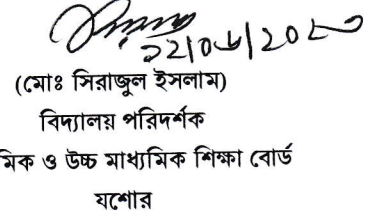 (মোঃ সিরাজুল ইসলাম)
বিদ্যালয় পরিদর্শক
মিক ও উচ্চ মাধ্যমিক শিক্ষা বোর্ড
যশোর